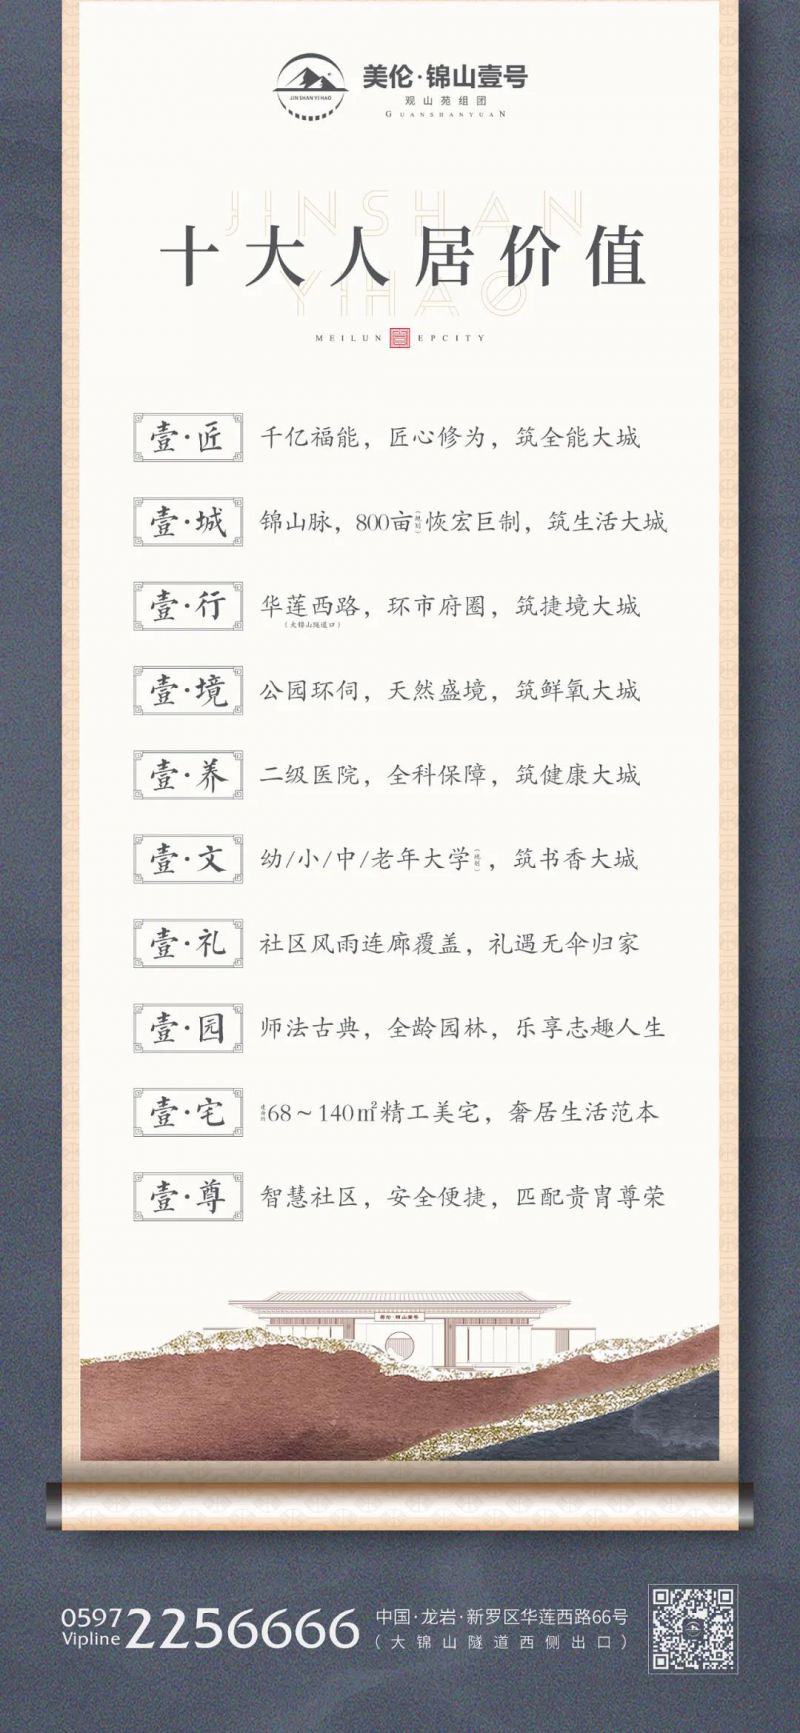 美伦·锦山壹号
JIN SHAN YI HAO
观山苑组团
GUANSHANYUAN
JINSHAN
十大人居价值
YIHAO
MEILUN EPCITY
壹·匠 千亿福能，匠心修为，筑全能大城
壹·城 锦山脉，800亩(规划)恢宏巨制，筑生活大城
壹·行 华莲西路，环市府圈，筑捷境大城
（大锦山隧道口）
壹·境 公园环伺，天然盛境，筑鲜氧大城
壹·养 二级医院，全科保障，筑健康大城
壹·文 幼/小/中/老年大学(规划)，筑书香大城
壹·礼 社区风雨连廊覆盖，礼遇无伞归家
壹·园 师法古典，全龄园林，乐享志趣人生
壹·宅 建面约68~140㎡精工美宅，奢居生活范本
壹·尊 智慧社区，安全便捷，匹配贵胄尊荣
美伦·锦山壹号
0597 2256666
Vipline
中国·龙岩·新罗区华莲西路66号
（大锦山隧道西侧出口）